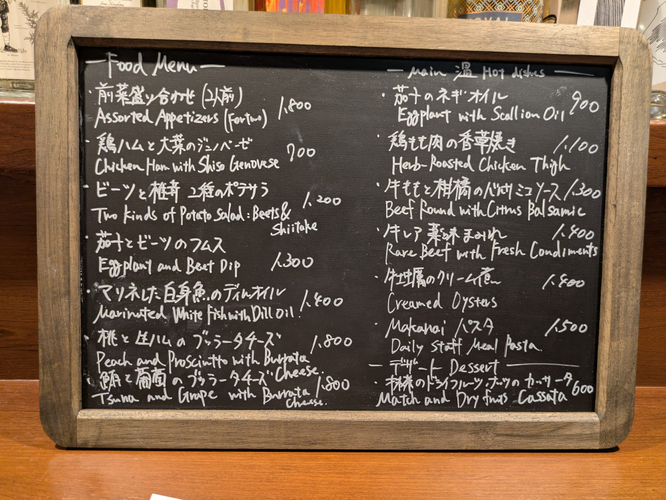 Food Menu
・前菜盛り合わせ(2人前)
Assorted Appetizers (For two) 1,800
・鶏ハムと大葉のジェノベーゼ
Chicken Ham with Shiso Genovese 700
・ビーツと椎茸 2種のポテサラ
Two kinds of Potato Salad: Beets & Shiitake 1,200
・茄子とビーツのフムス
Eggplant and Beet Dip 1,300
・マリネした白身魚のディルオイル
Marinated White Fish with Dill Oil 1,400
・桃と生ハムのブッラータチーズ
Peach and Prosciutto with Burrata Cheese. 1,800
・鮪と葡萄のブッラータチーズ
Tsuna and Grape with Burrata Cheese. 1,800
Main 温 Hot dishes
・茄子のネギオイル 900
Eggplant with Scallion Oil
・鶏もも肉の香草焼き 1,100
Herb-Roasted Chicken Thigh
・牛ももと柑橘のバルサミコソース 1,300
Beef Round with Citrus Balsamic
・牛レア 薬味まみれ 1,400
Rare Beef with Fresh Condiments
・牡蠣のクリーム煮 1,400
Creamed Oysters
・Makanai パスタ 1,500
Daily Staff Meal Pasta
デザート Dessert
・抹茶のドライフルーツ カッサータ 600
Match and Dry fruits Cassata